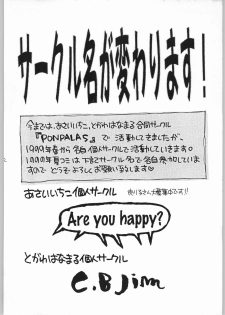 サークル名が変わります!
今までは、あさいいちこ、とがわはなまる合同サークル
『PONPALAS』で活動してきましたが、
1999年春から各自個人サークルで活動していきます。
1999年春コミは下記サークル名で各自参加していま
すので どうぞよろしくお願い致します♡
あさいいちこ個人サークル
Are you happy?
とがわはなまる個人サークル
C.B Jim